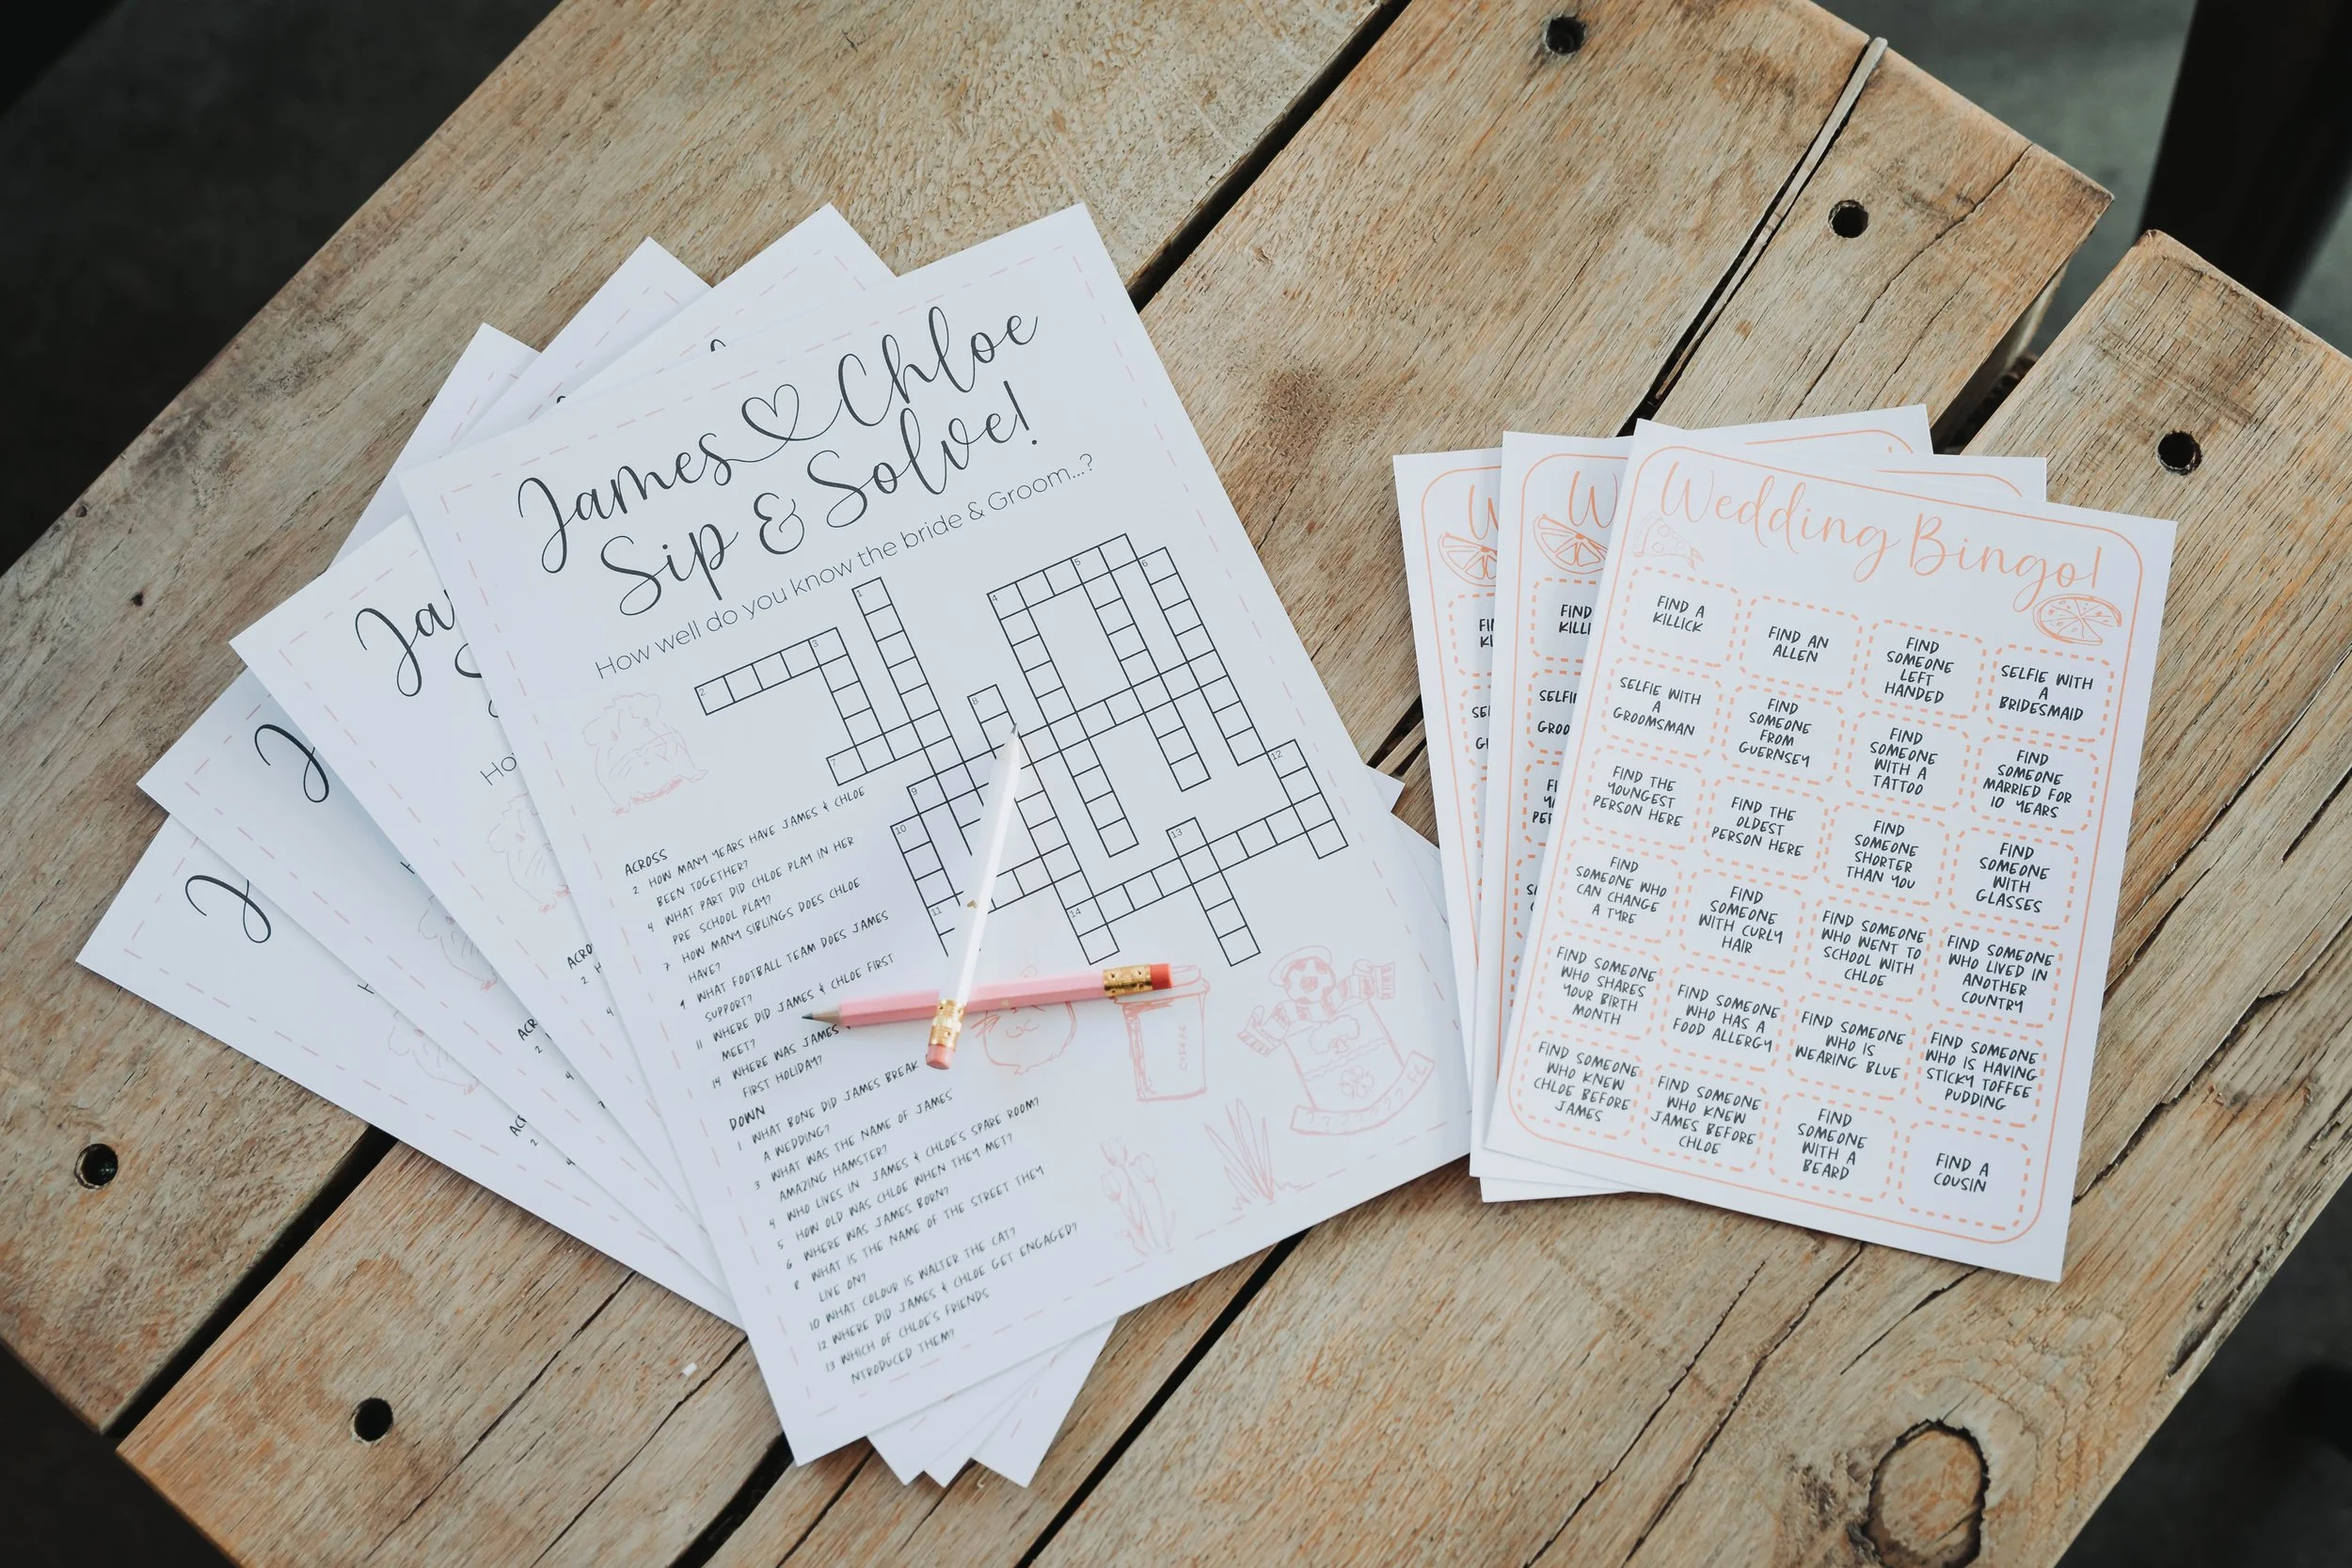 James Chloe
Sip & Solve!
How well do you know the bride & Groom...?
ACROSS
2 HOW MANY YEARS HAVE JAMES & CHLOE
BEEN TOGETHER?
4 WHAT PART DID CHLOE PLAY IN HER
PRE SCHOOL PLAY?
7 HOW MANY SIBLINGS DOES CHLOE
HAVE?
9 WHAT FOOTBALL TEAM DOES JAMES
SUPPORT?
11 WHERE DID JAMES & CHLOE FIRST
MEET?
14 WHERE WAS JAMES
FIRST HOLIDAY?
DOWN
1 WHAT BONE DID JAMES BREAK
A WEDDING?
3 WHAT WAS THE NAME OF JAMES
AMAZING HAMSTER?
4 WHO LIVES IN JAMES & CHLOE'S SPARE ROOM?
5 HOW OLD WAS CHLOE WHEN THEY MET?
6 WHERE WAS JAMES BORN?
8 WHAT IS THE NAME OF THE STREET THEY
LIVE ON?
10 WHAT COLOUR IS WALTER THE CAT?
12 WHERE DID JAMES & CHLOE GET ENGAGED?
13 WHICH OF CHLOE'S FRIENDS
NTRODUCED THEM?
1
2
3
4
5
6
7
8
9
10
11
12
13
14
COFFEE
Ja
Ho
ACRO
2
4
J
ACR
2
4
J
ACR
2
4
Wedding Bingo!
FIND A
KILLICK
FIND AN
ALLEN
FIND
SOMEONE
LEFT
HANDED
SELFIE WITH
A
BRIDESMAID
SELFIE WITH
A
GROOMSMAN
FIND
SOMEONE
FROM
GUERNSEY
FIND
SOMEONE
WITH A
TATTOO
FIND
SOMEONE
MARRIED FOR
10 YEARS
FIND THE
YOUNGEST
PERSON HERE
FIND THE
OLDEST
PERSON HERE
FIND
SOMEONE
SHORTER
THAN YOU
FIND
SOMEONE
WITH
GLASSES
FIND
SOMEONE WHO
CAN CHANGE
A TYRE
FIND
SOMEONE
WITH CURLY
HAIR
FIND SOMEONE
WHO WENT TO
SCHOOL WITH
CHLOE
FIND SOMEONE
WHO LIVED IN
ANOTHER
COUNTRY
FIND SOMEONE
WHO SHARES
YOUR BIRTH
MONTH
FIND SOMEONE
WHO HAS A
FOOD ALLERGY
FIND SOMEONE
WHO IS
WEARING BLUE
FIND SOMEONE
WHO IS HAVING
STICKY TOFFEE
PUDDING
FIND SOMEONE
WHO KNEW
CHLOE BEFORE
JAMES
FIND SOMEONE
WHO KNEW
JAMES BEFORE
CHLOE
FIND
SOMEONE
WITH A
BEARD
FIND A
COUSIN
W
FIND
KILL
SELFI
GROO
W